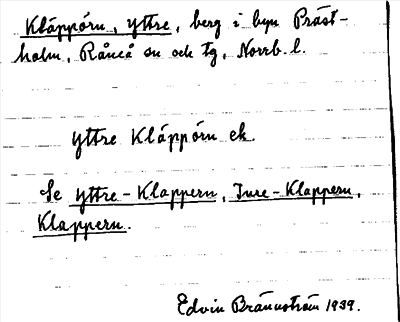 Kläppörn, yttre, berg i byn Präst-
holm, Råneå sn och tg, Norrb. l.
Yttre Kläppörn ek.
Se Yttre-Klappern, Inre-Klappern,
Klappern.
Edvin Brännström 1939.